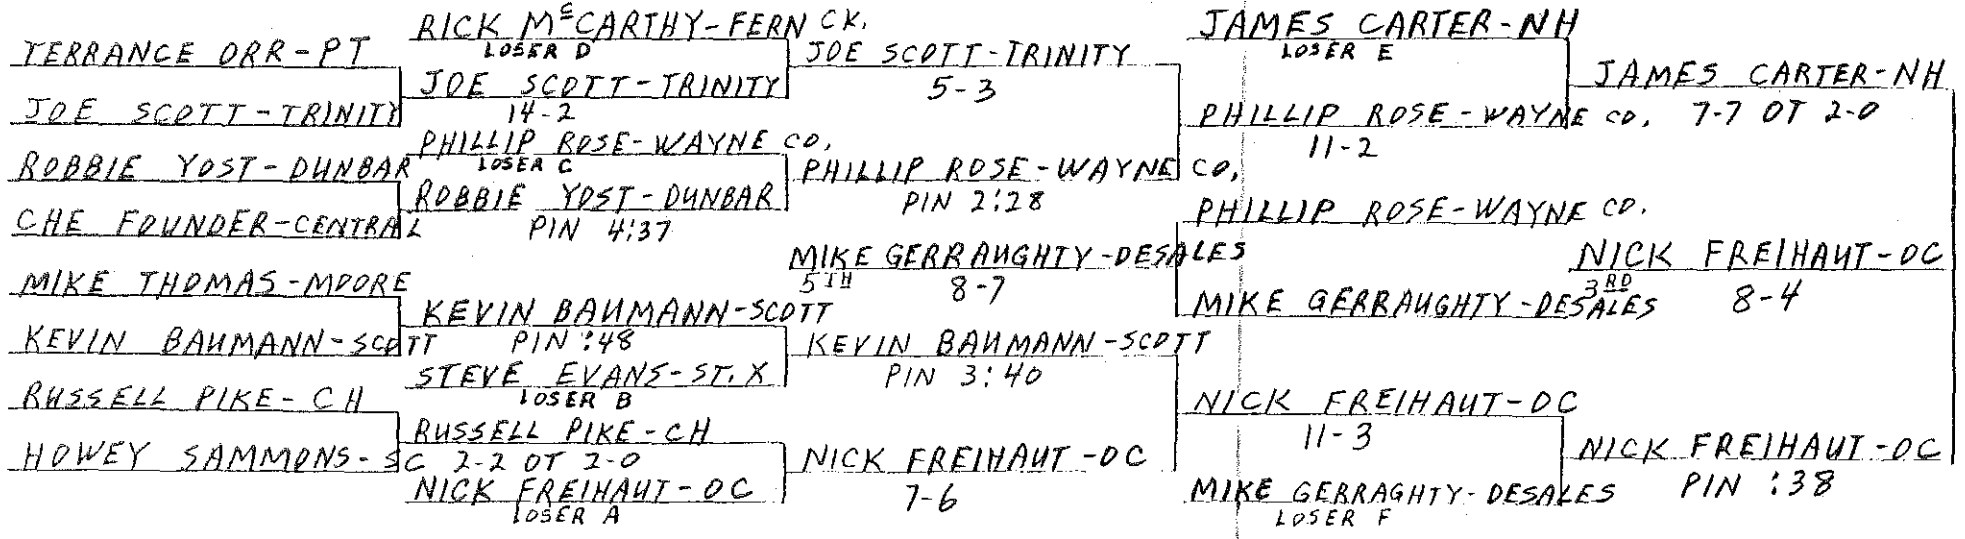 TERRANCE ORR-PT
JOE SCOTT-TRINITY
ROBBIE YOST-DUNBAR
CHE FOUNDER-CENTRAL
MIKE THOMAS-MOORE
KEVIN BAUMANN-SCOTT
RUSSELL PIKE-CH
HOWEY SAMMONS-SC
RICK McCARTHY-FERN CK.
LOSER D
JOE SCOTT-TRINITY
14-2
PHILLIP ROSE-WAYNE CO.
LOSER C
ROBBIE YOST-DUNBAR
PIN 4:37
KEVIN BAUMANN-SCOTT
PIN :48
STEVE EVANS-ST. X
LOSER B
RUSSELL PIKE-CH
2-2 OT 2-0
NICK FREIHAUT-OC
LOSER A
JOE SCOTT-TRINITY
5-3
PHILLIP ROSE-WAYNE CO.
PIN 2:28
MIKE GERRAUGHTY-DESALES
5TH 8-7
KEVIN BAUMANN-SCOTT
PIN 3:40
NICK FREIHAUT-OC
7-6
JAMES CARTER-NH
LOSER E
PHILLIP ROSE-WAYNE CO.
11-2
PHILLIP ROSE-WAYNE CO.
MIKE GERRAUGHTY-DESALES
NICK FREIHAUT-OC
11-3
MIKE GERRAGHTY-DESALES
LOSER F
JAMES CARTER-NH
7-7 OT 2-0
NICK FREIHAUT-OC
3RD 8-4
NICK FREIHAUT-OC
PIN :38